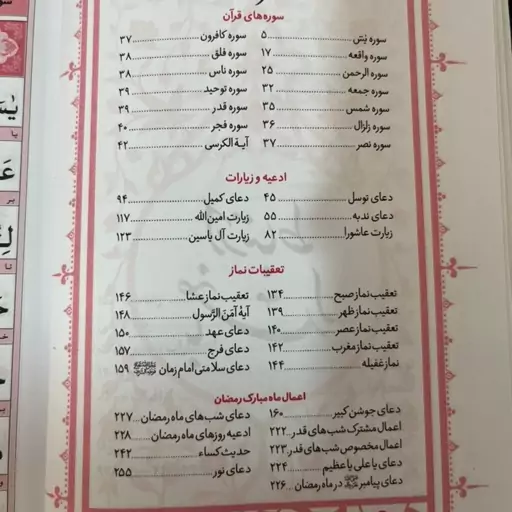 سوره‌های قرآن
سوره یس ۵
سوره واقعه ۱۷
سوره الرحمن ۲۵
سوره جمعه ۳۲
سوره شمس ۳۵
سوره زلزال ۳۶
سوره نصر ۳۷
سوره کافرون ۳۷
سوره فلق ۳۸
سوره ناس ۳۸
سوره توحید ۳۹
سوره قدر ۳۹
سوره فجر ۴۰
آیة الکرسی ۴۲
ادعیه و زیارات
دعای توسل ۴۵
دعای ندبه ۵۵
زیارت عاشورا ۸۲
دعای کمیل ۹۴
زیارت امین‌الله ۱۱۷
زیارت آل یاسین ۱۲۳
تعقیبات نماز
تعقیب نماز صبح ۱۳۴
تعقیب نماز ظهر ۱۳۹
تعقیب نماز عصر ۱۴۰
تعقیب نماز مغرب ۱۴۲
نماز غفیله ۱۴۴
تعقیب نماز عشا ۱۴۶
آیهٔ آمَنَ الرَّسول ۱۴۸
دعای عهد ۱۵۰
دعای فرج ۱۵۷
دعای سلامتی امام زمان ۱۵۹
اعمال ماه مبارک رمضان
دعای جوشن کبیر ۱۶۰
اعمال مشترک شب‌های قدر ۲۲۲
اعمال مخصوص شب‌های قدر ۲۲۳
دعای یا علی یا عظیم ۲۲۴
دعای پیامبر ﷺ در ماه رمضان ۲۲۶
دعای شب‌های ماه رمضان ۲۲۷
ادعیه روزهای ماه رمضان ۲۲۸
حدیث کساء ۲۴۲
دعای نور ۲۵۵